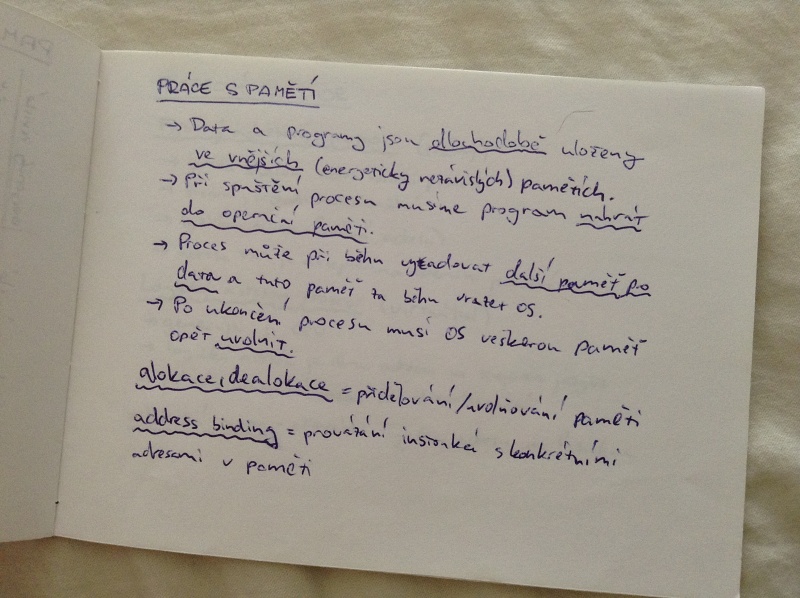 PRÁCE S PAMĚTÍ
→ Data a programy jsou dlouhodobě uloženy
ve vnějších (energeticky nezávislých) pamětích.
→ Při spuštění procesu musíme program nahrát
do operační paměti.
→ Proces může při běhu vyžadovat další paměť pro
data a tuto paměť za běhu vrátit OS.
→ Po ukončení procesu musí OS veškerou paměť
opět uvolnit.
alokace, dealokace = přidělování/uvolňování paměti
address binding = provázání instrukcí s konkrétními
adresami v paměti